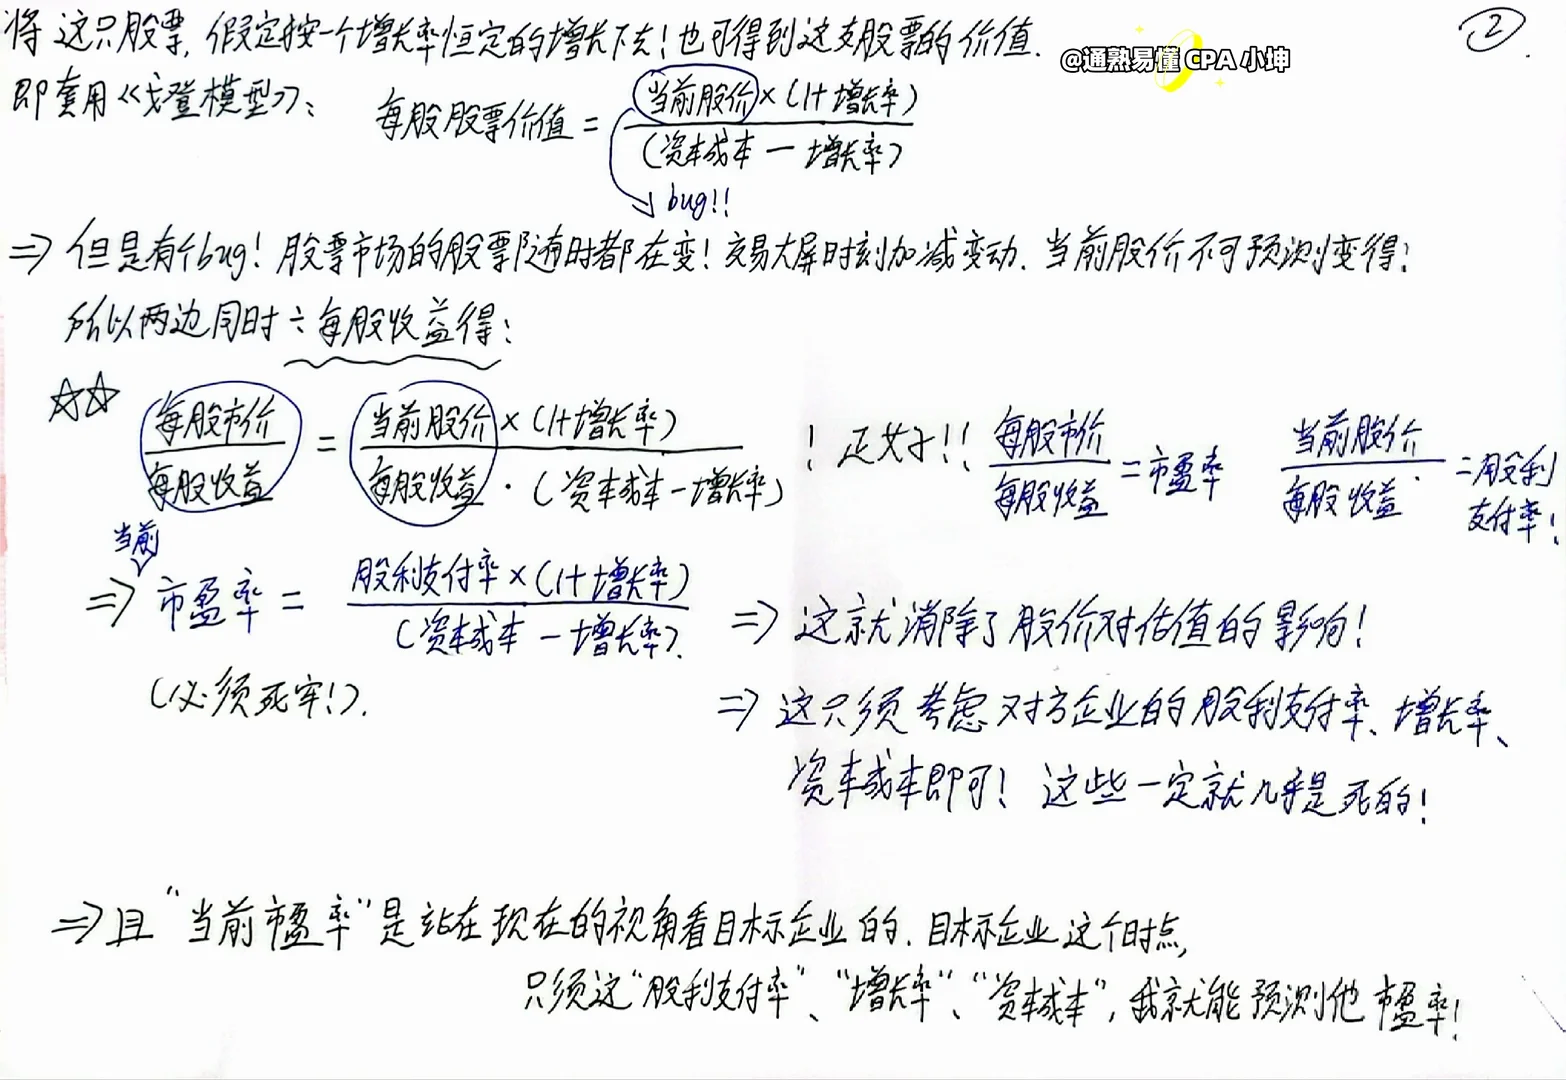 将这只股票,假定按一个增长率恒定的增长下去!也可得到这支股票的价值.
②
@通熟易懂 CPA 小坤
即套用《戈登模型》:
每股股票价值 = 当前股价×(1+增长率) / (资本成本 - 增长率)
bug!!
⇒ 但是有个bug! 股票市场的股票随时都在变! 交易大屏时刻加减变动. 当前股价不可预测变得:
所以两边同时÷每股收益得:
☆☆
每股市价 / 每股收益 = 当前股价×(1+增长率) / 每股收益·(资本成本-增长率)
! 正女子!! 每股市价 / 每股收益 = 市盈率 当前股价 / 每股收益 = 股利支付率!
当前
⇒ 市盈率 = 股利支付率×(1+增长率) / (资本成本 - 增长率).
⇒ 这就消除了股价对估值的影响!
(必须死牢!).
⇒ 这只须考虑对方企业的股利支付率、增长率、
资本成本即可! 这些一定就几乎是死的!
⇒ 且"当前市盈率"是站在现在的视角看目标企业的. 目标企业这个时点,
只须这"股利支付率"、"增长率"、"资本成本", 我就能预测他市盈率!